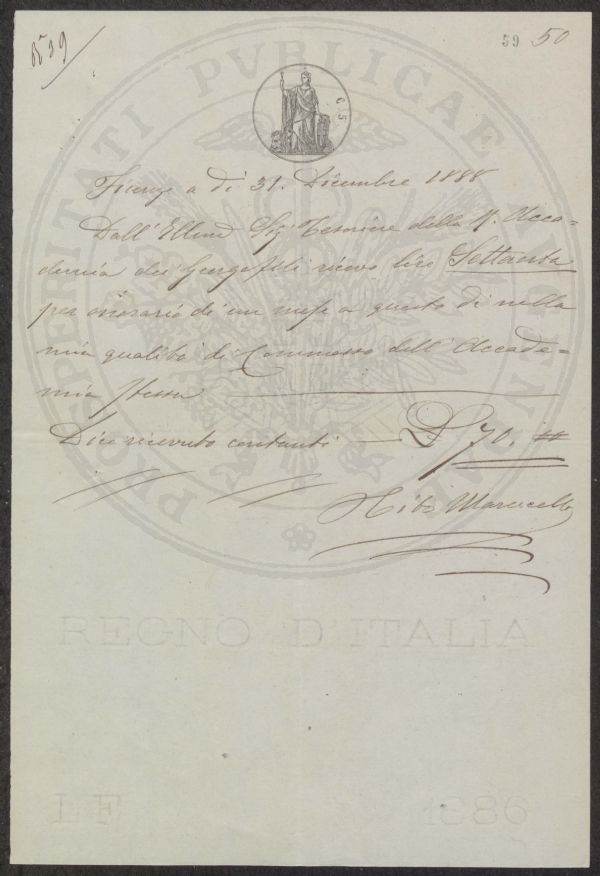 59 50
PROSPERITATI PVBLICAE AVGENDAE
C. 5.
Firenze a dì 31. Dicembre 1888
Dall' Ellmo Sig Tesoriere della R. Acca=
demia dei Georgofili ricevo lire Settanta
per onorario di un mese a questo dì nella
mia qualità di Commesso dell' Accade=
mia stessa
Dico ricevuto contanti — £ 70. "
Maruc
REGNO D'ITALIA
LF 1886